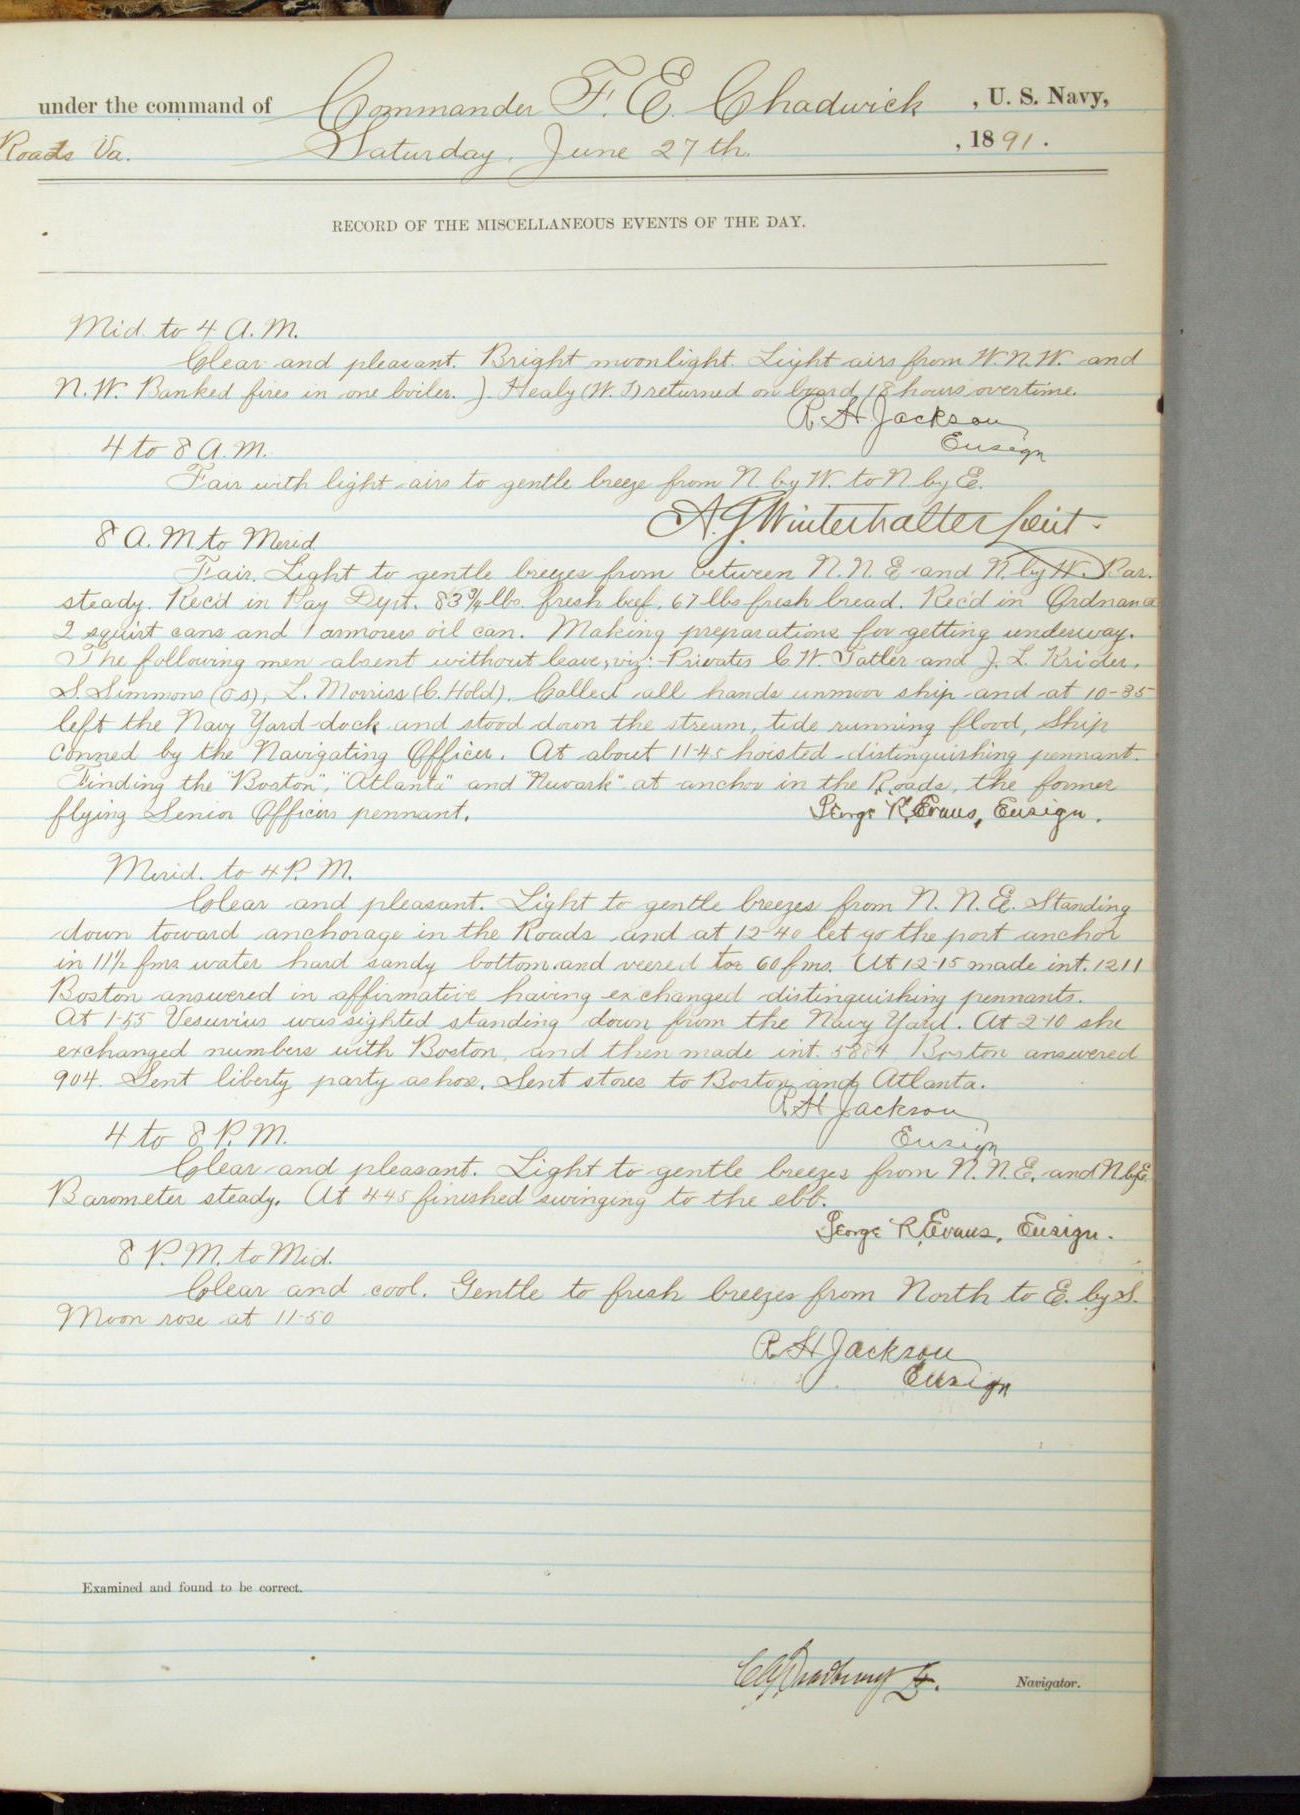 under the command of Commander F. E. Chadwick, U. S. Navy,
Roads Va. Saturday, June 27th, 1891.
RECORD OF THE MISCELLANEOUS EVENTS OF THE DAY.
Mid. to 4 A.M.
Clear and pleasant. Bright moonlight. Light airs from W.N.W. and
N.W. Banked fires in one boiler. J. Healy (W.T) returned on board 18 hours overtime.
R H Jackson
Ensign
4 to 8 A.M.
Fair with light airs to gentle breeze from N. by W. to N by E.
A. G. Winterhalter Lieut.
8 A.M to Merid
Fair. Light to gentle breezes from between N.N.E and N. by W. Bar.
steady. Rec'd in Pay Dept. 83 3/4 lbs. fresh beef, 67 lbs fresh bread. Rec'd in Ordnance
2 squirt cans and 1 armorers oil can. Making preparations for getting underway.
The following men absent without leave, viz: Privates C. W. Tatler and J. L. Krider,
S. Simmons (O S), L. Morriss (C. Hold). Called all hands unmoor ship and at 10-35
left the Navy Yard dock and stood down the stream, tide running flood, ship
conned by the Navigating Officer. At about 11-45 hoisted distinguishing pennant.
Finding the "Boston", "Atlanta" and "Newark" at anchor in the Roads, the former
flying Senior Officers pennant. George R. Evans, Ensign.
Merid. to 4 P.M.
Clear and pleasant. Light to gentle breezes from N.N.E. Standing
down toward anchorage in the Roads and at 12-40 let go the port anchor
in 11½ fms. water hard sandy bottom and veered to 60 fms. At 12-15 made int. 1211
Boston answered in affirmative having exchanged distinguishing pennants.
At 1-55 Vesuvius was sighted standing down from the Navy Yard. At 2-10 she
exchanged numbers with Boston, and then made int. 5884 Boston answered
904. Sent liberty party ashore. Sent stores to Boston and Atlanta.
R H Jackson
Ensign
4 to 8 P.M.
Clear and pleasant. Light to gentle breezes from N.N.E. and N by E.
Barometer steady. At 4 45 finished swinging to the ebb.
George R. Evans, Ensign.
8 P.M. to Mid.
Clear and cool. Gentle to fresh breezes from North to E. by S.
Moon rose at 11-50
R H Jackson
Ensign
Examined and found to be correct.
Navigator.